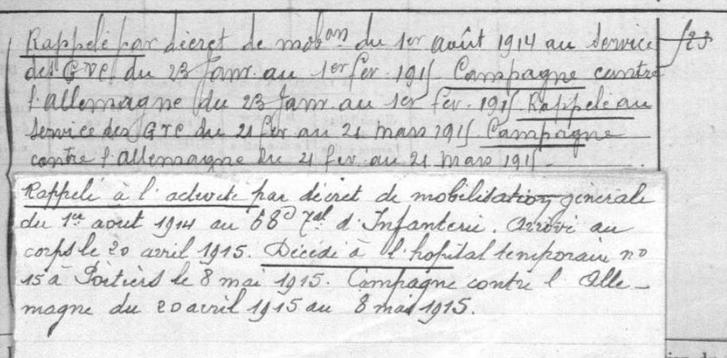 Rappelé par décret de mobon du 1er août 1914 au service
des GVC du 23 Janv. au 1er fev. 1915 Campagne contre
l'allemagne du 23 Janv. au 1er fev. 1915. Rappelé au
Service des GVC du 21 fev au 21 mars 1915 Campagne
contre l'allemagne du 21 fev. au 21 mars 1915.
Rappelé à l'activité par décret de mobilisation génerale
du 1er aout 1914 au 68e d'Infanterie. Arrivé au
corps le 20 avril 1915. Décédé à l'hopital temporaire no
15 à Poitiers le 8 mai 1915. Campagne contre l'Alle-
magne du 20 avril 1915 au 8 mai 1915.